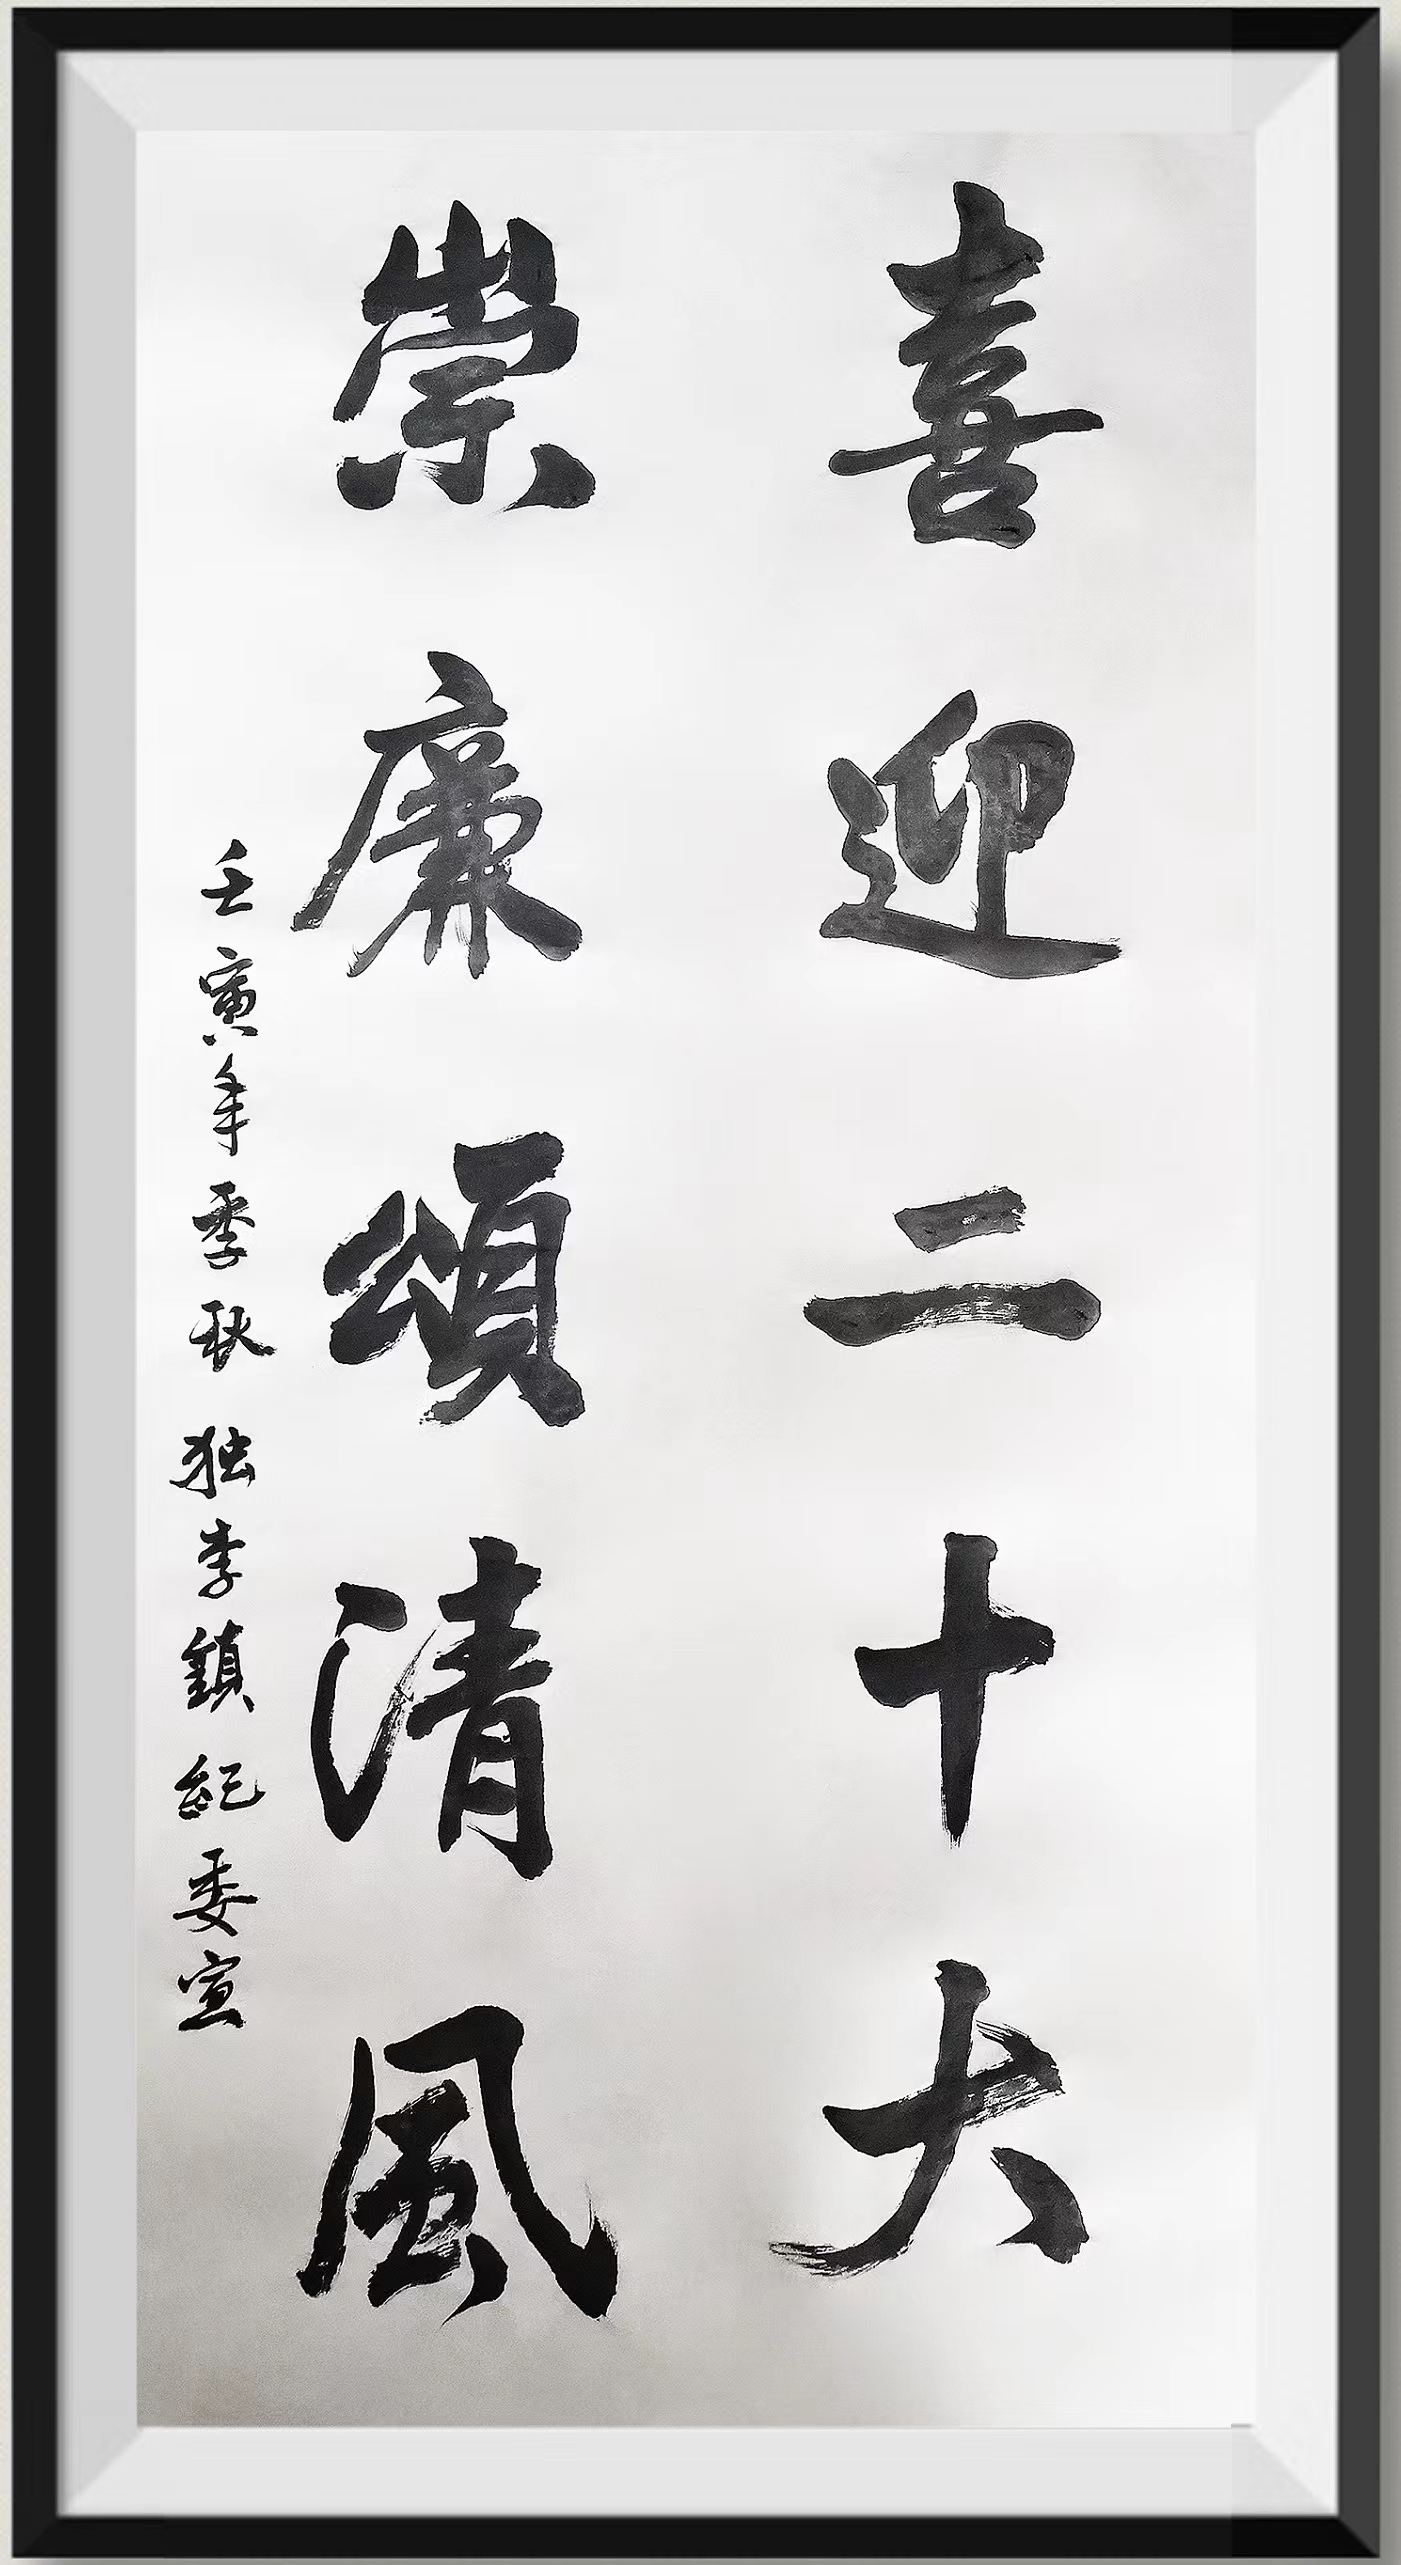 喜迎二十大
崇廉頌清風
壬寅年季秋独李鎮紀委宣